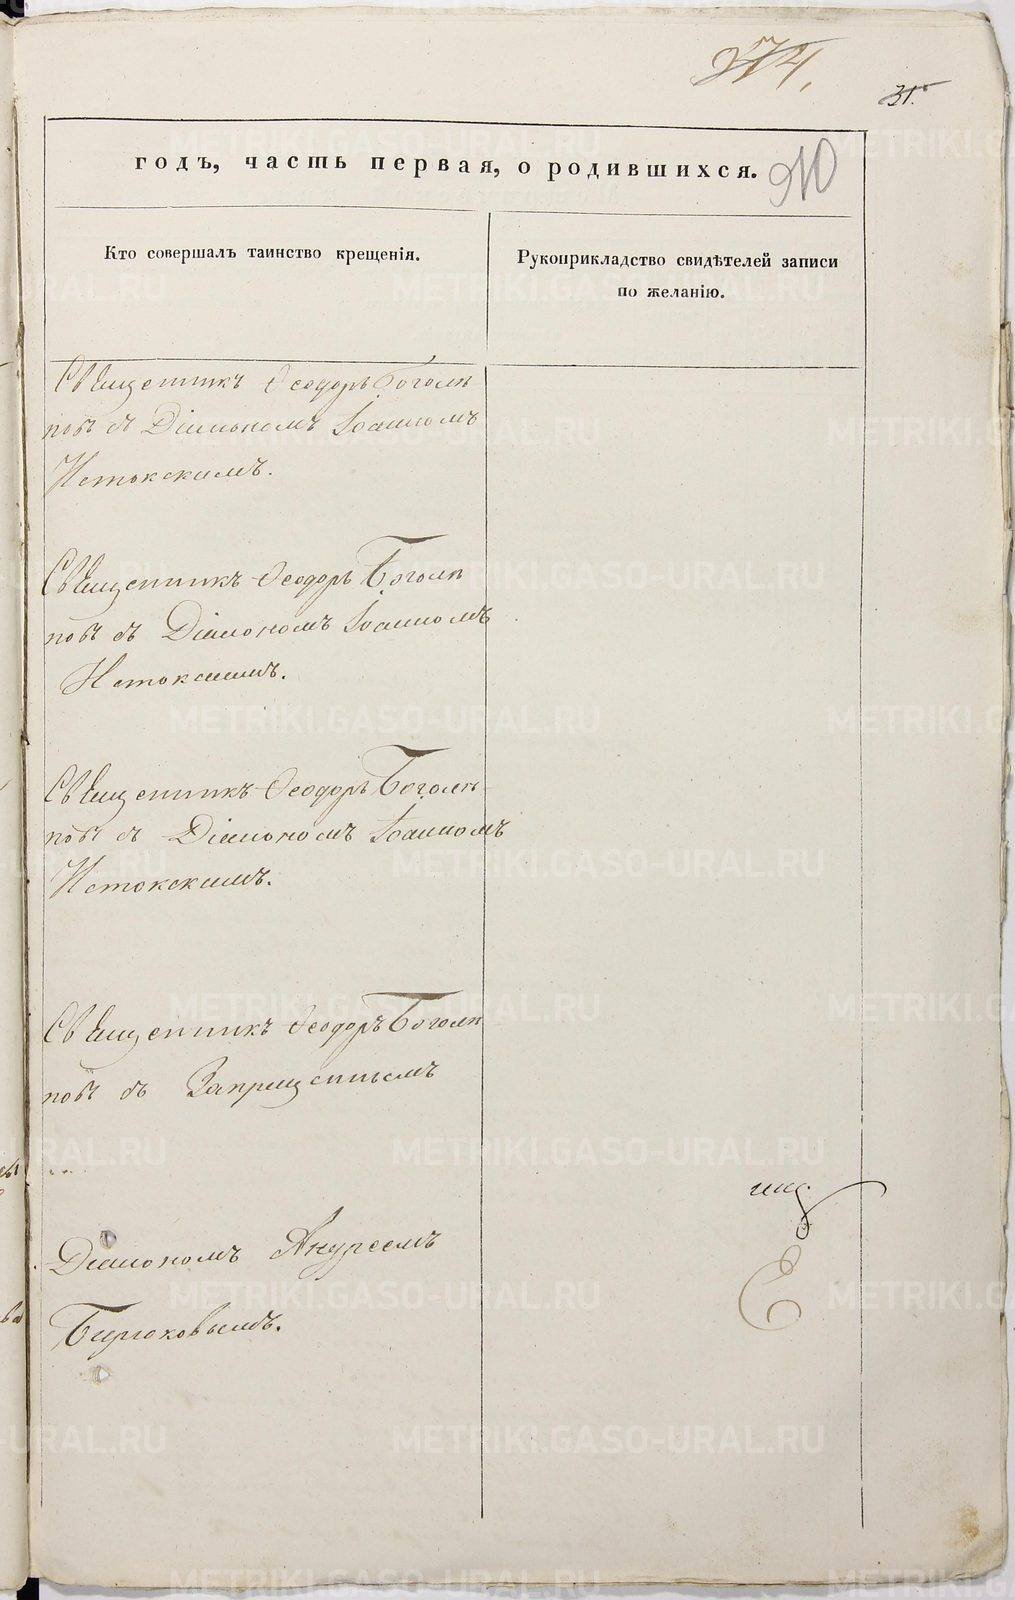 374,
31.
годъ, часть первая, о родившихся.
Кто совершалъ таинство крещенія.
Рукоприкладство свидѣтелей записи
по желанію.
Священникъ Ѳеодоръ Боголѣ
повъ съ Діакономъ Іоанномъ
Истокскимъ.
Священникъ Ѳеодоръ Боголѣ
повъ съ Діакономъ Іоанномъ
Истокскимъ.
Священникъ Ѳеодоръ Боголѣ
повъ съ Діакономъ Іоанномъ
Истокскимъ.
Священникъ Ѳеодоръ Боголѣ
повъ съ Запрещеннымъ
Діакономъ Андреемъ
Бирюковымъ.
METRIKI.GASO-URAL.RU